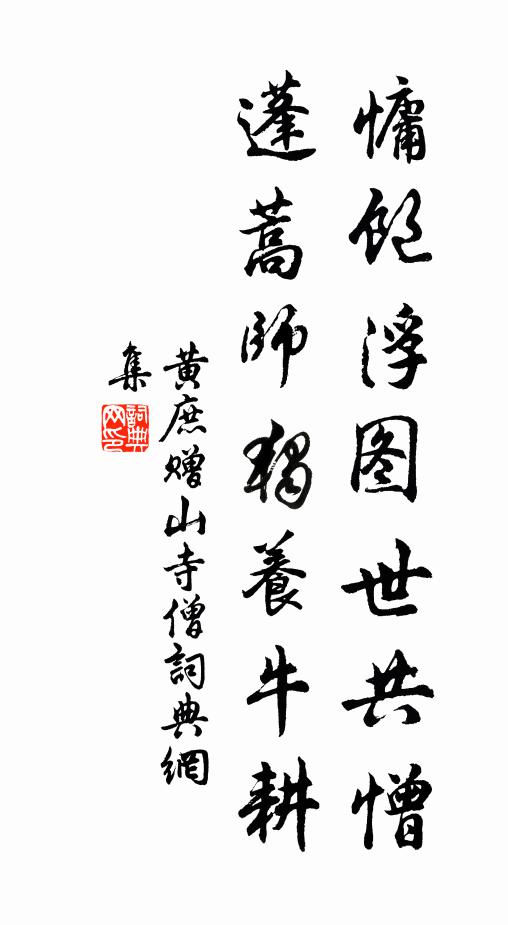 慵饱浮图世共憎
蓬蒿师独养牛耕
黄庶赠山寺僧詞典網
集
詞典
网印